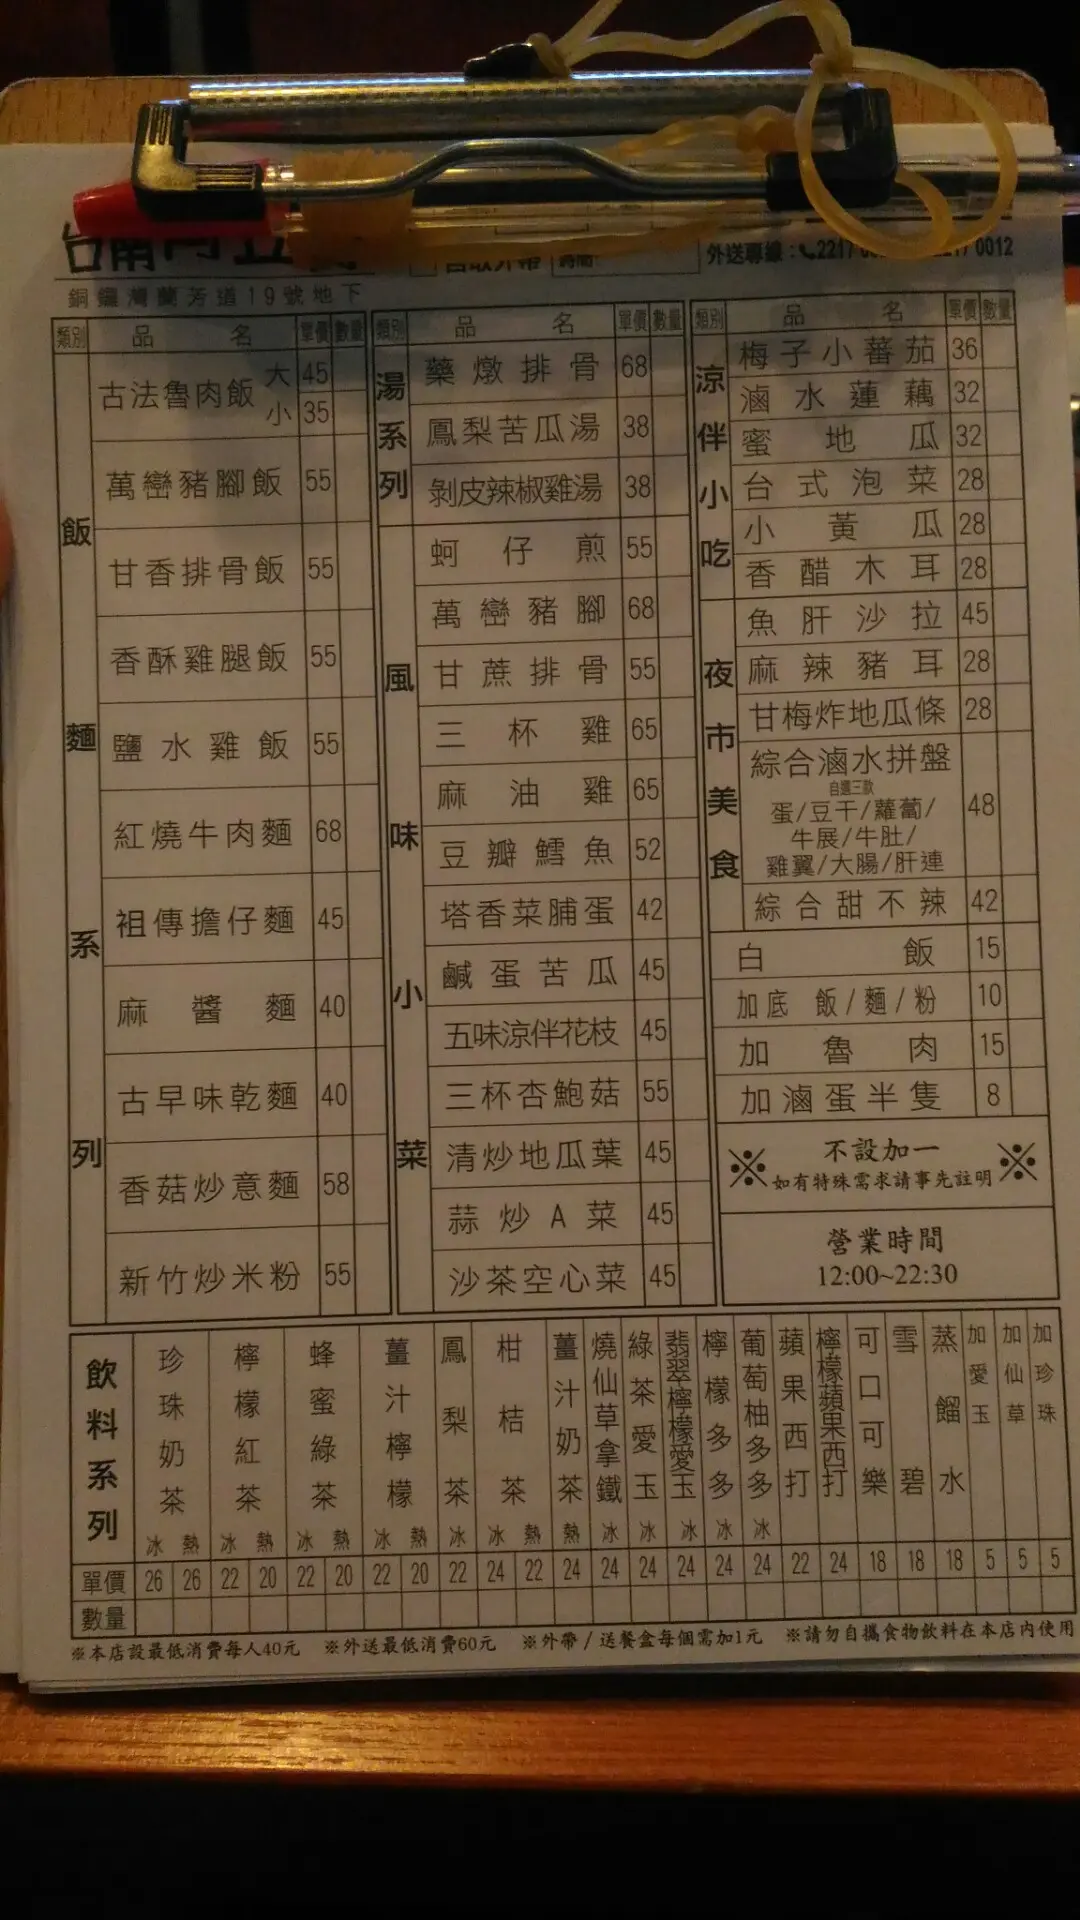 台南
外送專線:
0012
銅鑼灣蘭芳道19號地下
類別 品名 單價 數量
飯麵系列
古法魯肉飯 大 45
小 35
萬巒豬腳飯 55
甘香排骨飯 55
香酥雞腿飯 55
鹽水雞飯 55
紅燒牛肉麵 68
祖傳擔仔麵 45
麻醬麵 40
古早味乾麵 40
香菇炒意麵 58
新竹炒米粉 55
類別 品名 單價 數量
湯系列
藥燉排骨 68
鳳梨苦瓜湯 38
剝皮辣椒雞湯 38
風味小菜
蚵仔煎 55
萬巒豬腳 68
甘蔗排骨 55
三杯雞 65
麻油雞 65
豆瓣鱈魚 52
塔香菜脯蛋 42
鹹蛋苦瓜 45
五味涼伴花枝 45
三杯杏鮑菇 55
清炒地瓜葉 45
蒜炒A菜 45
沙茶空心菜 45
類別 品名 單價 數量
涼伴小吃
梅子小蕃茄 36
滷水蓮藕 32
蜜地瓜 32
台式泡菜 28
小黃瓜 28
香醋木耳 28
夜市美食
魚肝沙拉 45
麻辣豬耳 28
甘梅炸地瓜條 28
綜合滷水拼盤 48
自選三款
蛋/豆干/蘿蔔/
牛展/牛肚/
雞翼/大腸/肝連
綜合甜不辣 42
白飯 15
加底 飯/麵/粉 10
加魯肉 15
加滷蛋半隻 8
※ 不設加一 ※
如有特殊需求請事先註明
營業時間
12:00~22:30
飲料系列
單價
數量
珍珠奶茶 冰 熱 26 26
檸檬紅茶 冰 熱 22 20
蜂蜜綠茶 冰 熱 22 20
薑汁檸檬 冰 熱 22 20
鳳梨茶 冰 22
柑桔茶 冰 熱 24 22
薑汁奶茶 熱 24
燒仙草拿鐵 冰 24
綠茶愛玉 冰 24
翡翠檸檬愛玉 冰 24
檸檬多多 冰 24
葡萄柚多多 冰 24
蘋果西打 22
檸檬蘋果西打 24
可口可樂 18
雪碧 18
蒸餾水 18
加愛玉 5
加仙草 5
加珍珠 5
※本店設最低消費每人40元 ※外送最低消費60元 ※外帶/送餐盒每個需加1元 ※請勿自攜食物飲料在本店內使用